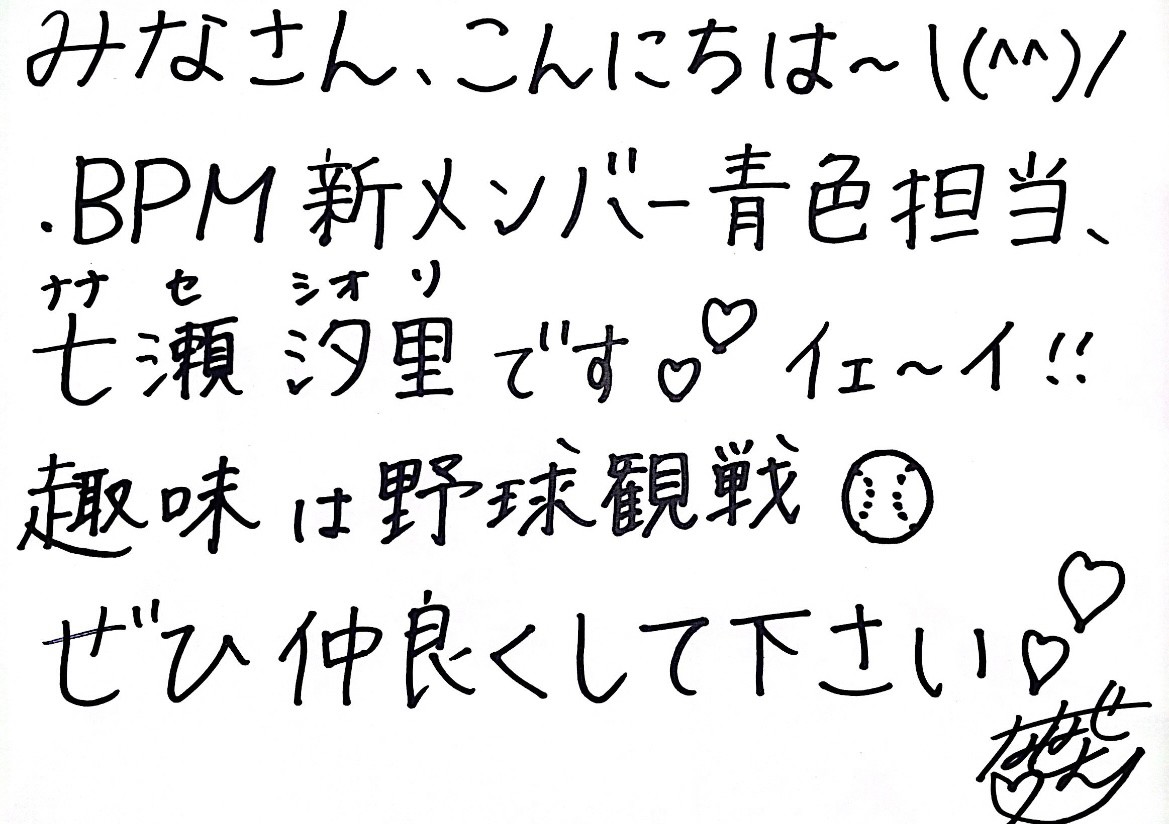 みなさん、こんにちは～\(^^)/
.BPM新メンバー青色担当、
ナナ セ シオリ
七瀬 汐里です♡♡ イェ～イ!!
趣味は野球観戦⚾
ぜひ仲良くして下さい♡♡